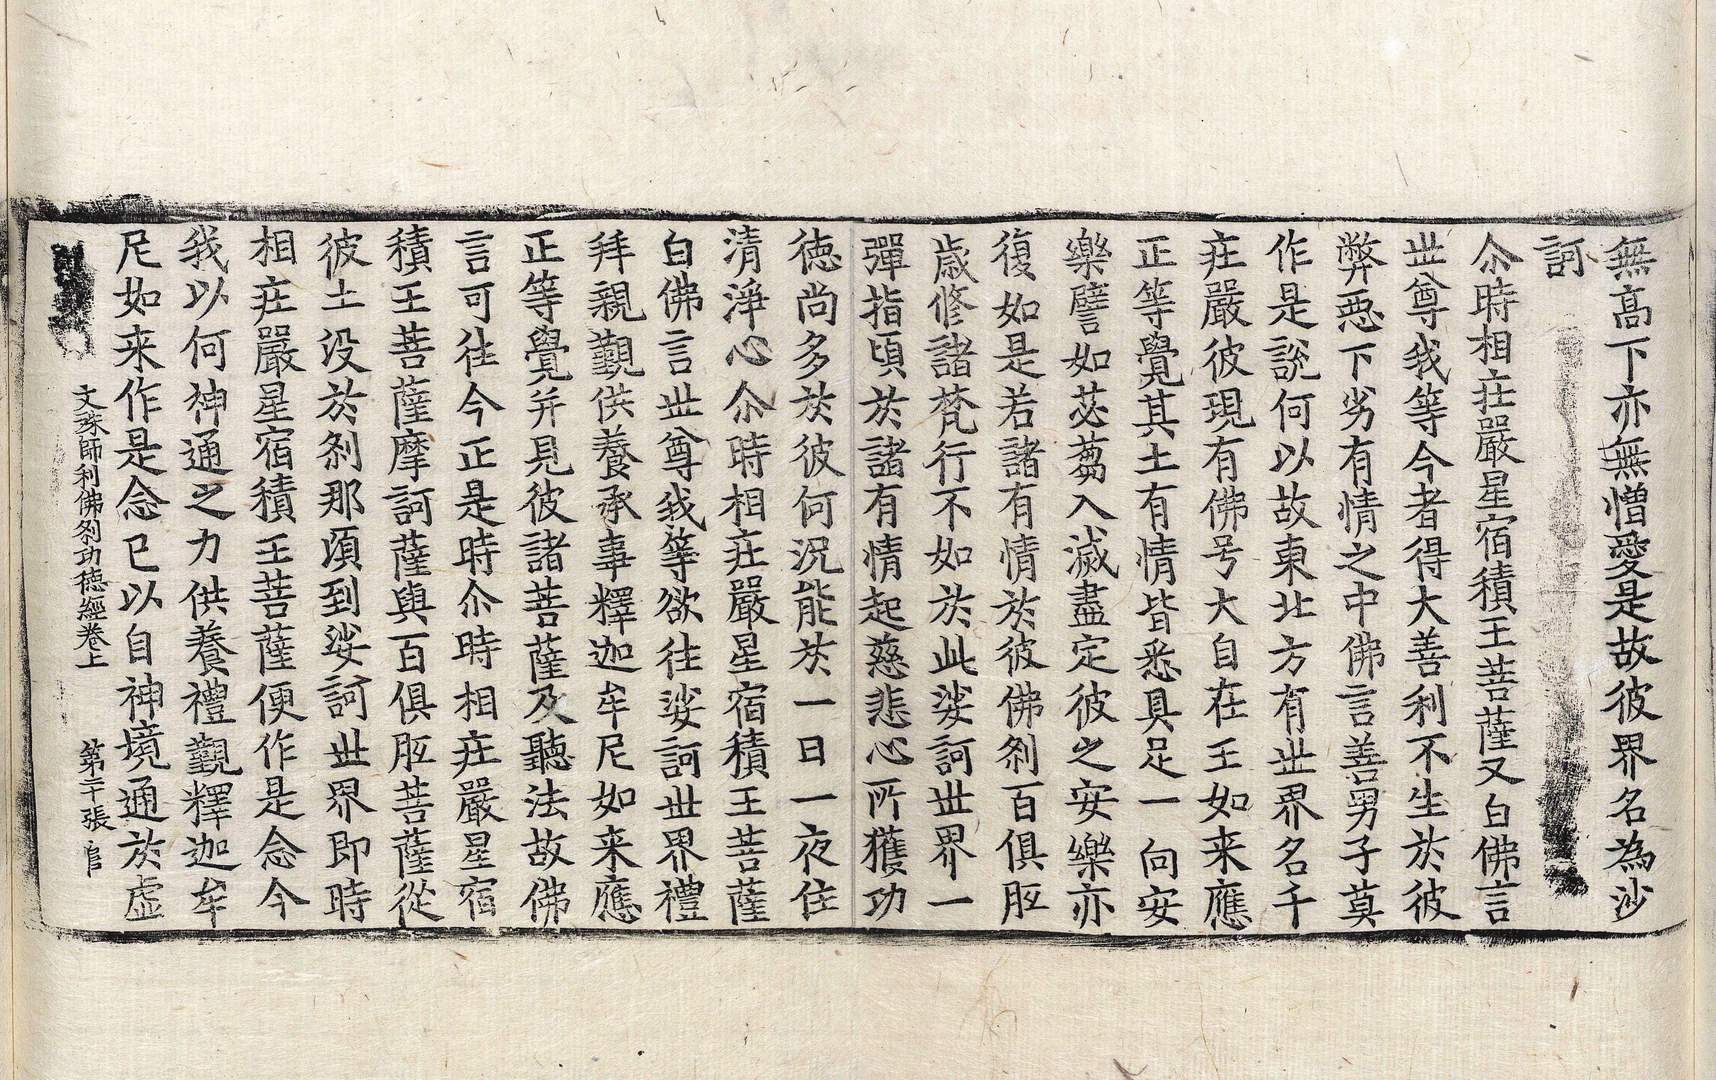 無高下亦無憎愛是故彼界名為沙
訶
尒時相莊嚴星宿積王菩薩又白佛言
世尊我等今者得大善利不生於彼
弊惡下劣有情之中佛言善男子莫
作是說何以故東北方有世界名千
莊嚴彼現有佛号大自在王如来應
正等覺其土有情皆悉具足一向安
樂譬如苾蒭入滅盡定彼之安樂亦
復如是若諸有情於彼佛刹百俱胝
歲修諸梵行不如於此娑訶世界一
彈指頃於諸有情起慈悲心所獲功
德尚多於彼何況能於一日一夜住
清淨心尒時相莊嚴星宿積王菩薩
白佛言世尊我等欲往娑訶世界禮
拜親覲供養承事釋迦牟尼如来應
正等覺并見彼諸菩薩及聽法故佛
言可往今正是時尒時相莊嚴星宿
積王菩薩摩訶薩與百俱胝菩薩從
彼土没於刹那頃到娑訶世界即時
相莊嚴星宿積王菩薩便作是念今
我以何神通之力供養禮覲釋迦牟
尼如来作是念已以自神境通於虛
文殊師利佛刹功德經卷上 第二十張 官